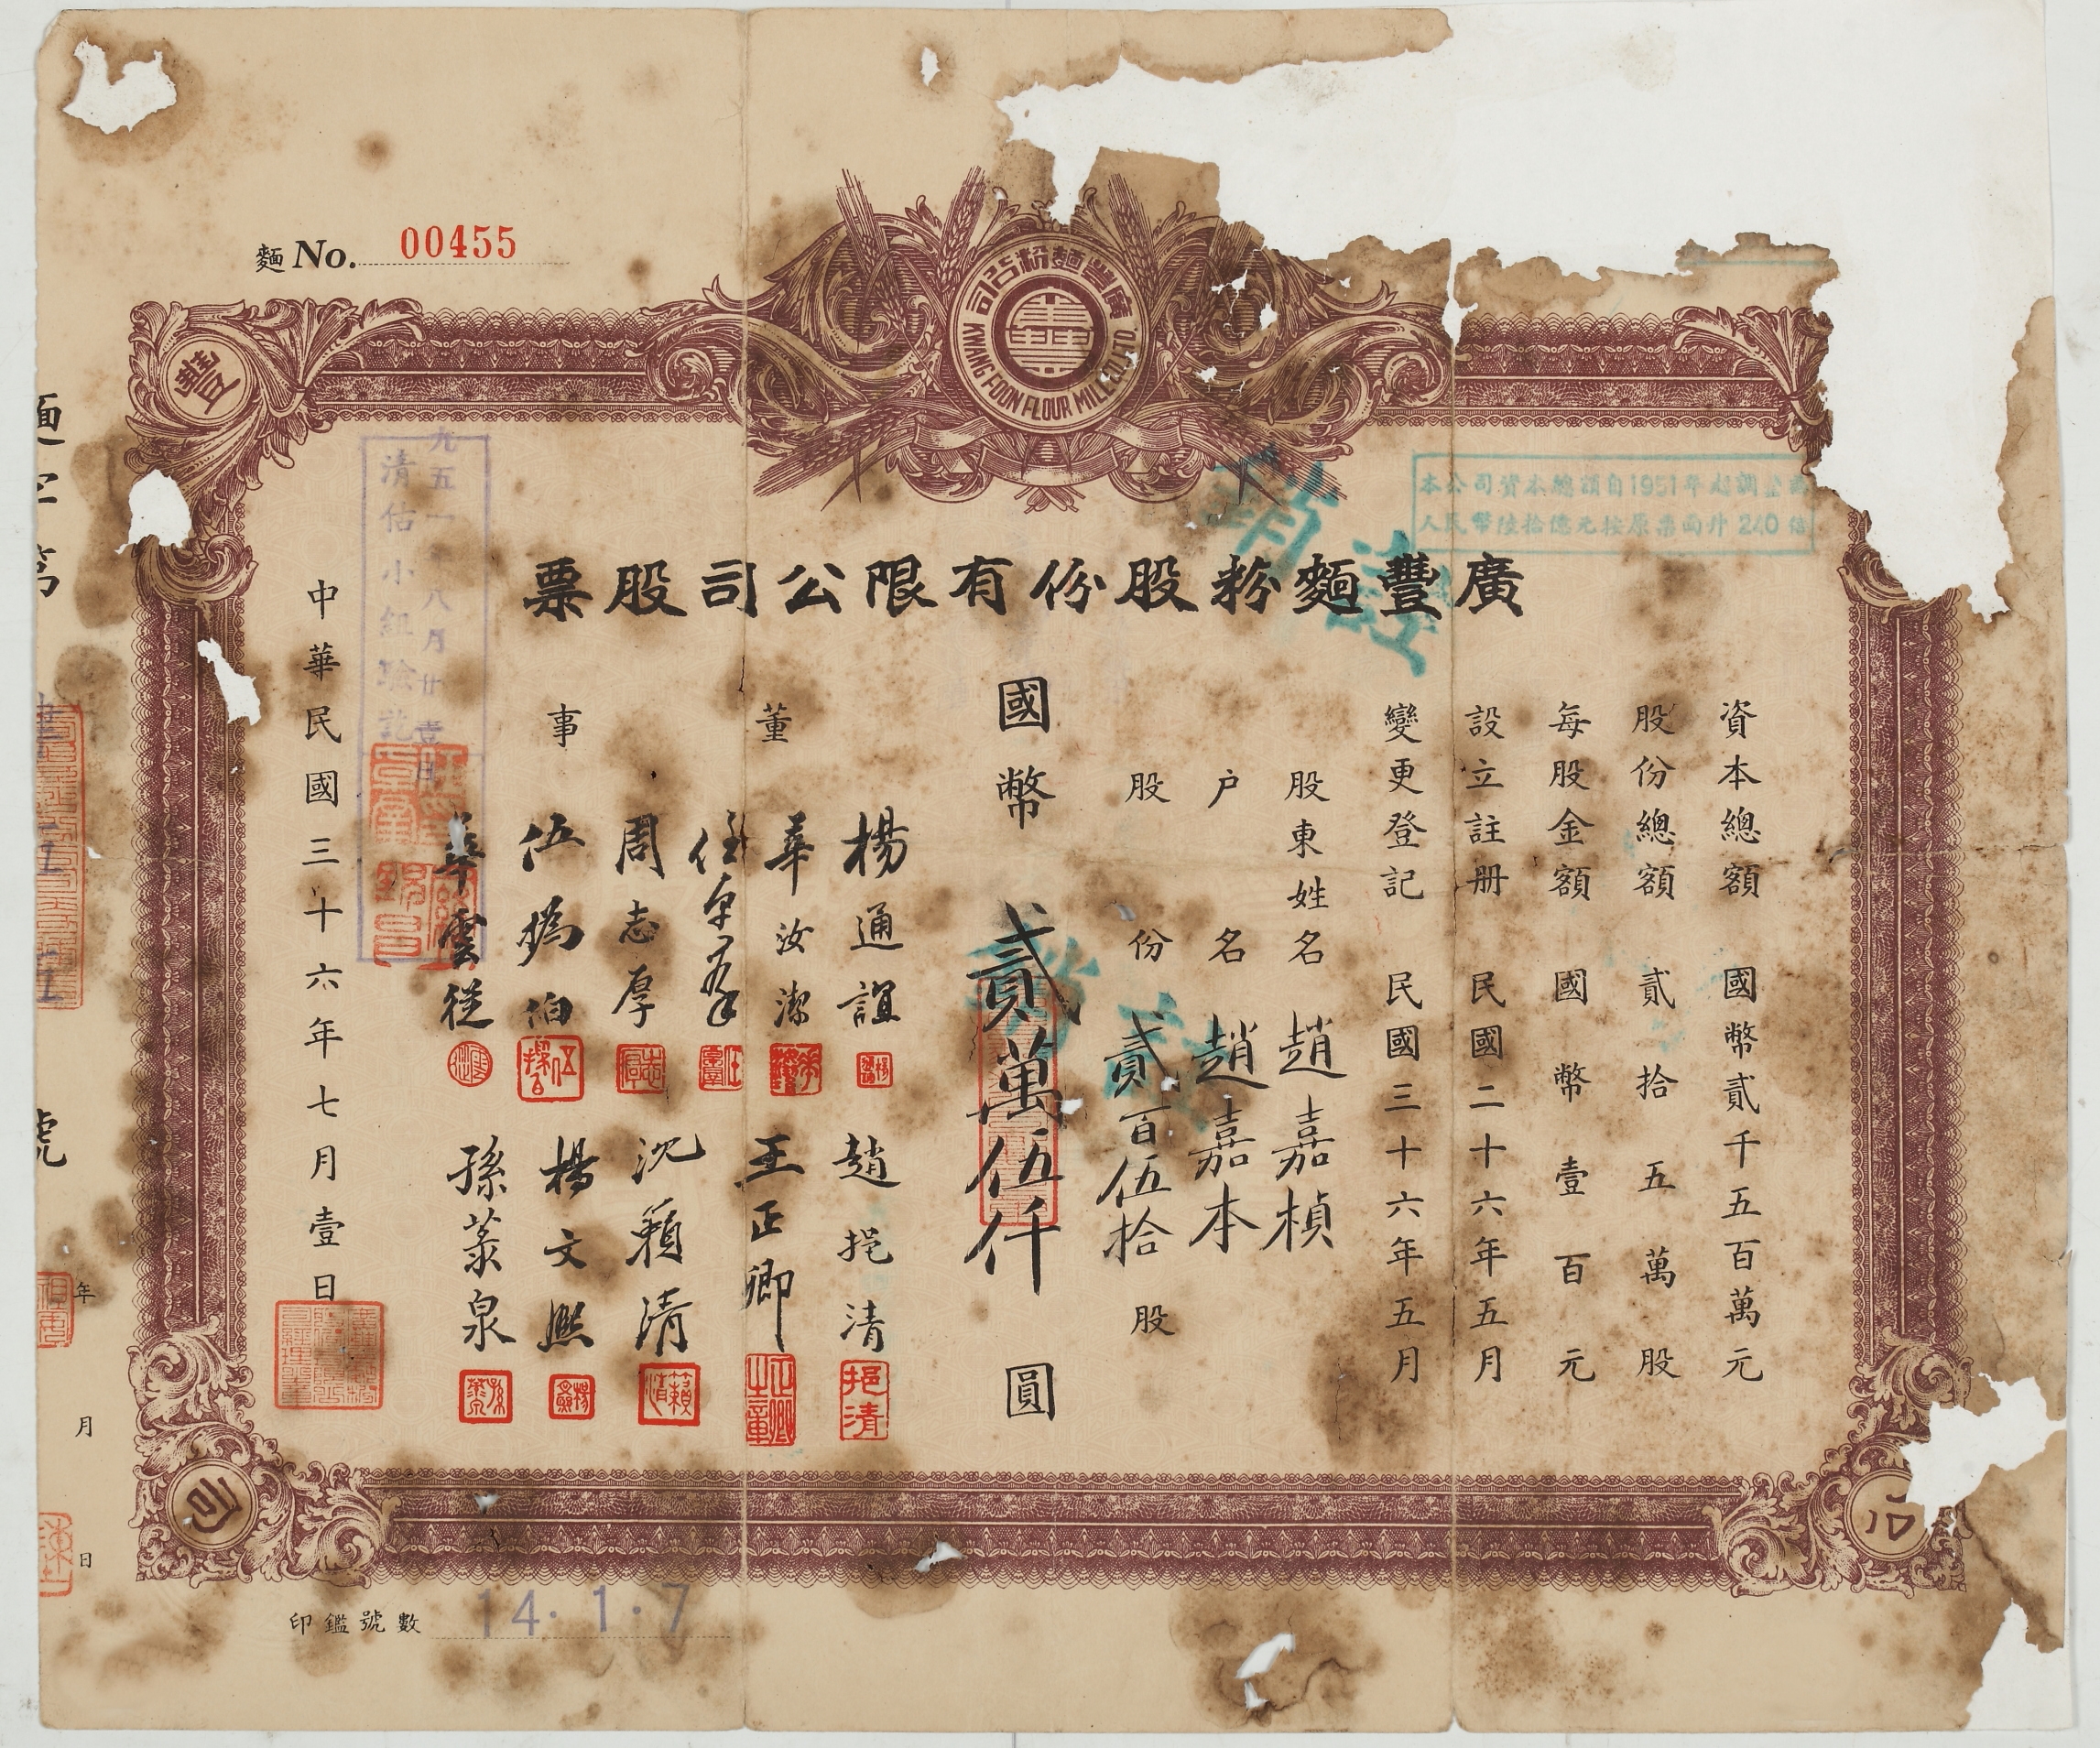 麵 No. 00455
廣豐麵粉公司
KWANG FOON FLOUR MILL CO. LTD.
豐
本公司資本總額自1951年起調整為
人民幣陸拾億元按原票面升240倍
廣豐麵粉股份有限公司股票
資本總額 國幣貳千五百萬元
股份總額 貳拾五萬股
每股金額 國幣壹百元
設立註册 民國二十六年五月
變更登記 民國三十六年五月
股東姓名 趙嘉楨
户名 趙嘉本
股份 貳百伍拾股
國幣 貳萬伍仟 圓
董事
楊通誼
華汝潔
周志厚
伍撝伯
華雲從
趙挹清
王正卿
沈籟清
楊文熙
孫蒸泉
挹清
中華民國三十六年七月壹日
一九五一年八月廿壹日
清估小組驗訖
號
年
月
日
司
公
印鑑號數 14·1·7